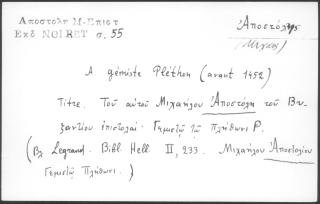 Αποστολη Μ-Επιστ
Εκδ NOIRET σ. 55
Ἀποστόλης
(Μιχαὴλ)
A gémiste Pléthon (avant 1452)
Titre. Τοῦ αὐτοῦ Μιχαήλου Ἀποστόλη τοῦ Βυ-
ζαντίου ἐπιστολαί· Γεμιστῷ τῷ Πλήθωνι Ρ.
(Βλ Legrand. Bibl. Hell II, 233. Μιχαήλου Ἀποστολίου
Γεμιστῷ Πλήθωνι.)